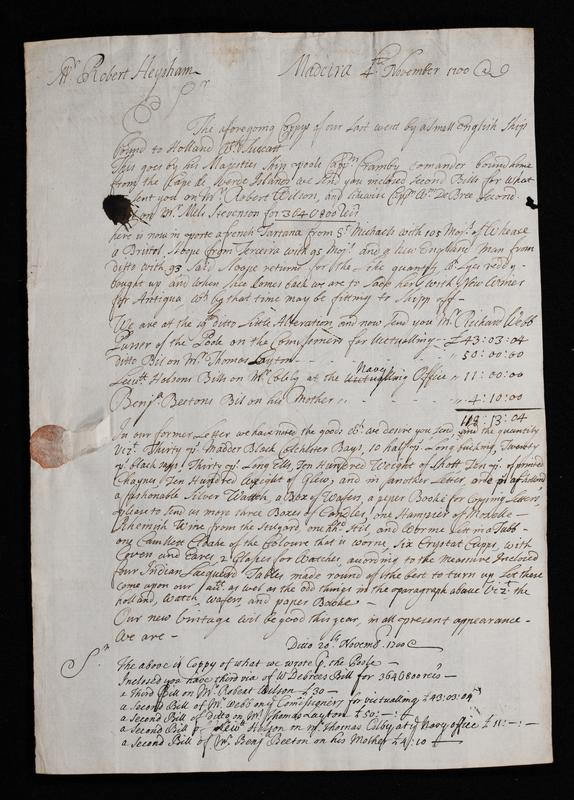 Mr. Robert Heysham Madeira 4th November 1700
Sr
The aforegoing Coppy of our Last went by a small English Ship
bound to Holland
This goes by his Majesties Ship poole Capn Cramby Comander bound home
from the Cape de Verde Islands we send you inclosed second Bills for what
sent you on Mr. Robert Wilson, and likewise Capn Wm DeBree second
on Mr. Mels Stevenson for 3640800 reis
here is now in porte a french Tartana from St Michaels with 105 Moys of Wheate
a Bristol Sloope from Tercera with 95 Moys and a New England man from
Ditto with 93 said Sloope returns for the quantity we lye ready
bought up and when shee Comes back we are to Lade her with New Wines
for Antigua by that time may be fitting to Shipp off
We are at the Ditto Little Alteration, and now send you Mr. Richard Webb
Purser of the Poole on the Comissioners for Victualling £ 43:03:04
Ditto Bil on Mr. Thomas Layton " 50:00:00
Lewitt Hobsons Bills on Mr. Colby at the Navy Office " 11:00:00
Benja Beetons Bil on his Mother " 4:10:00
13:04
In our former Letter we have noted the goods we desire you send and the quantity
Vizt. Thirty ps. Madder Black Colchester Bays, 10 half ps. Long Twenty
ps. black says, Thirty ps. Long Ells, Ten Hundred Weight of Shott Ten ps. of printed
Ten Hundred Weight of Glew, and in another Letter,
a fashionable Silver Watch, a Box of Wafers, a paper Booke for Copying Letters,
please to send us more three Boxes of Candles, one Hamper of
Rhenish Wine from the Stilyard one
one Camlett Cloake of the Coloure that is worne, Six Crystal Cupps, with
Covers and Eares, 2 Glasses for Watches, according to the Measure Inclosed
four Indian Lacquerd Tables made round of the best to turn up Let these
come upon our acct. as well as the old things in the paragraph above Vizt. the
holland, Watch, wafers, and paper Booke
Our new Vintage wil be good this year, in all present appearance
We are
Ditto 20th Novemb. 1700
Sr.
The above is Coppy of what we wrote p. the Poole
Inclosed you have third via of W Debrees Bill for 3640800 reis
a Third Bill on Mr. Robert Wilson £30
a Second Bill of Mr. Webb on Comissioners for victualling £43:03:04
a Second Bill of Ditto on Mr. Thomas Layton £50:-:-
a Second Bill of Lewitt Hobson on Mr. Thomas Colby at ye Navy office £11:-:-
a Second Bill of Mr. Benja Beeton on his Mother £4:10